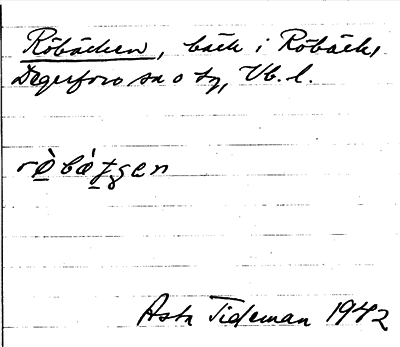 Röbäcken, bäck i Röbäck,
Degerfors sn o tg, Vb. l.
Asta Tideman 1942